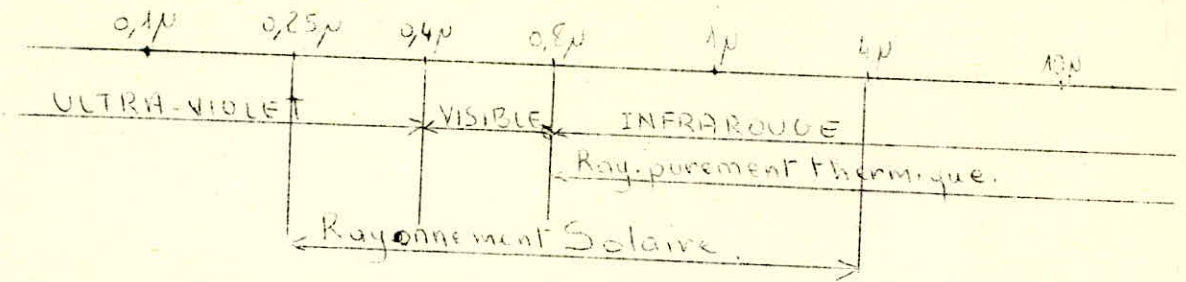 0,1μ 0,25μ 0,4μ 0,8μ 1μ 4μ 10μ
ULTRA-VIOLET VISIBLE INFRAROUGE
Ray. purement thermique.
Rayonnement Solaire.